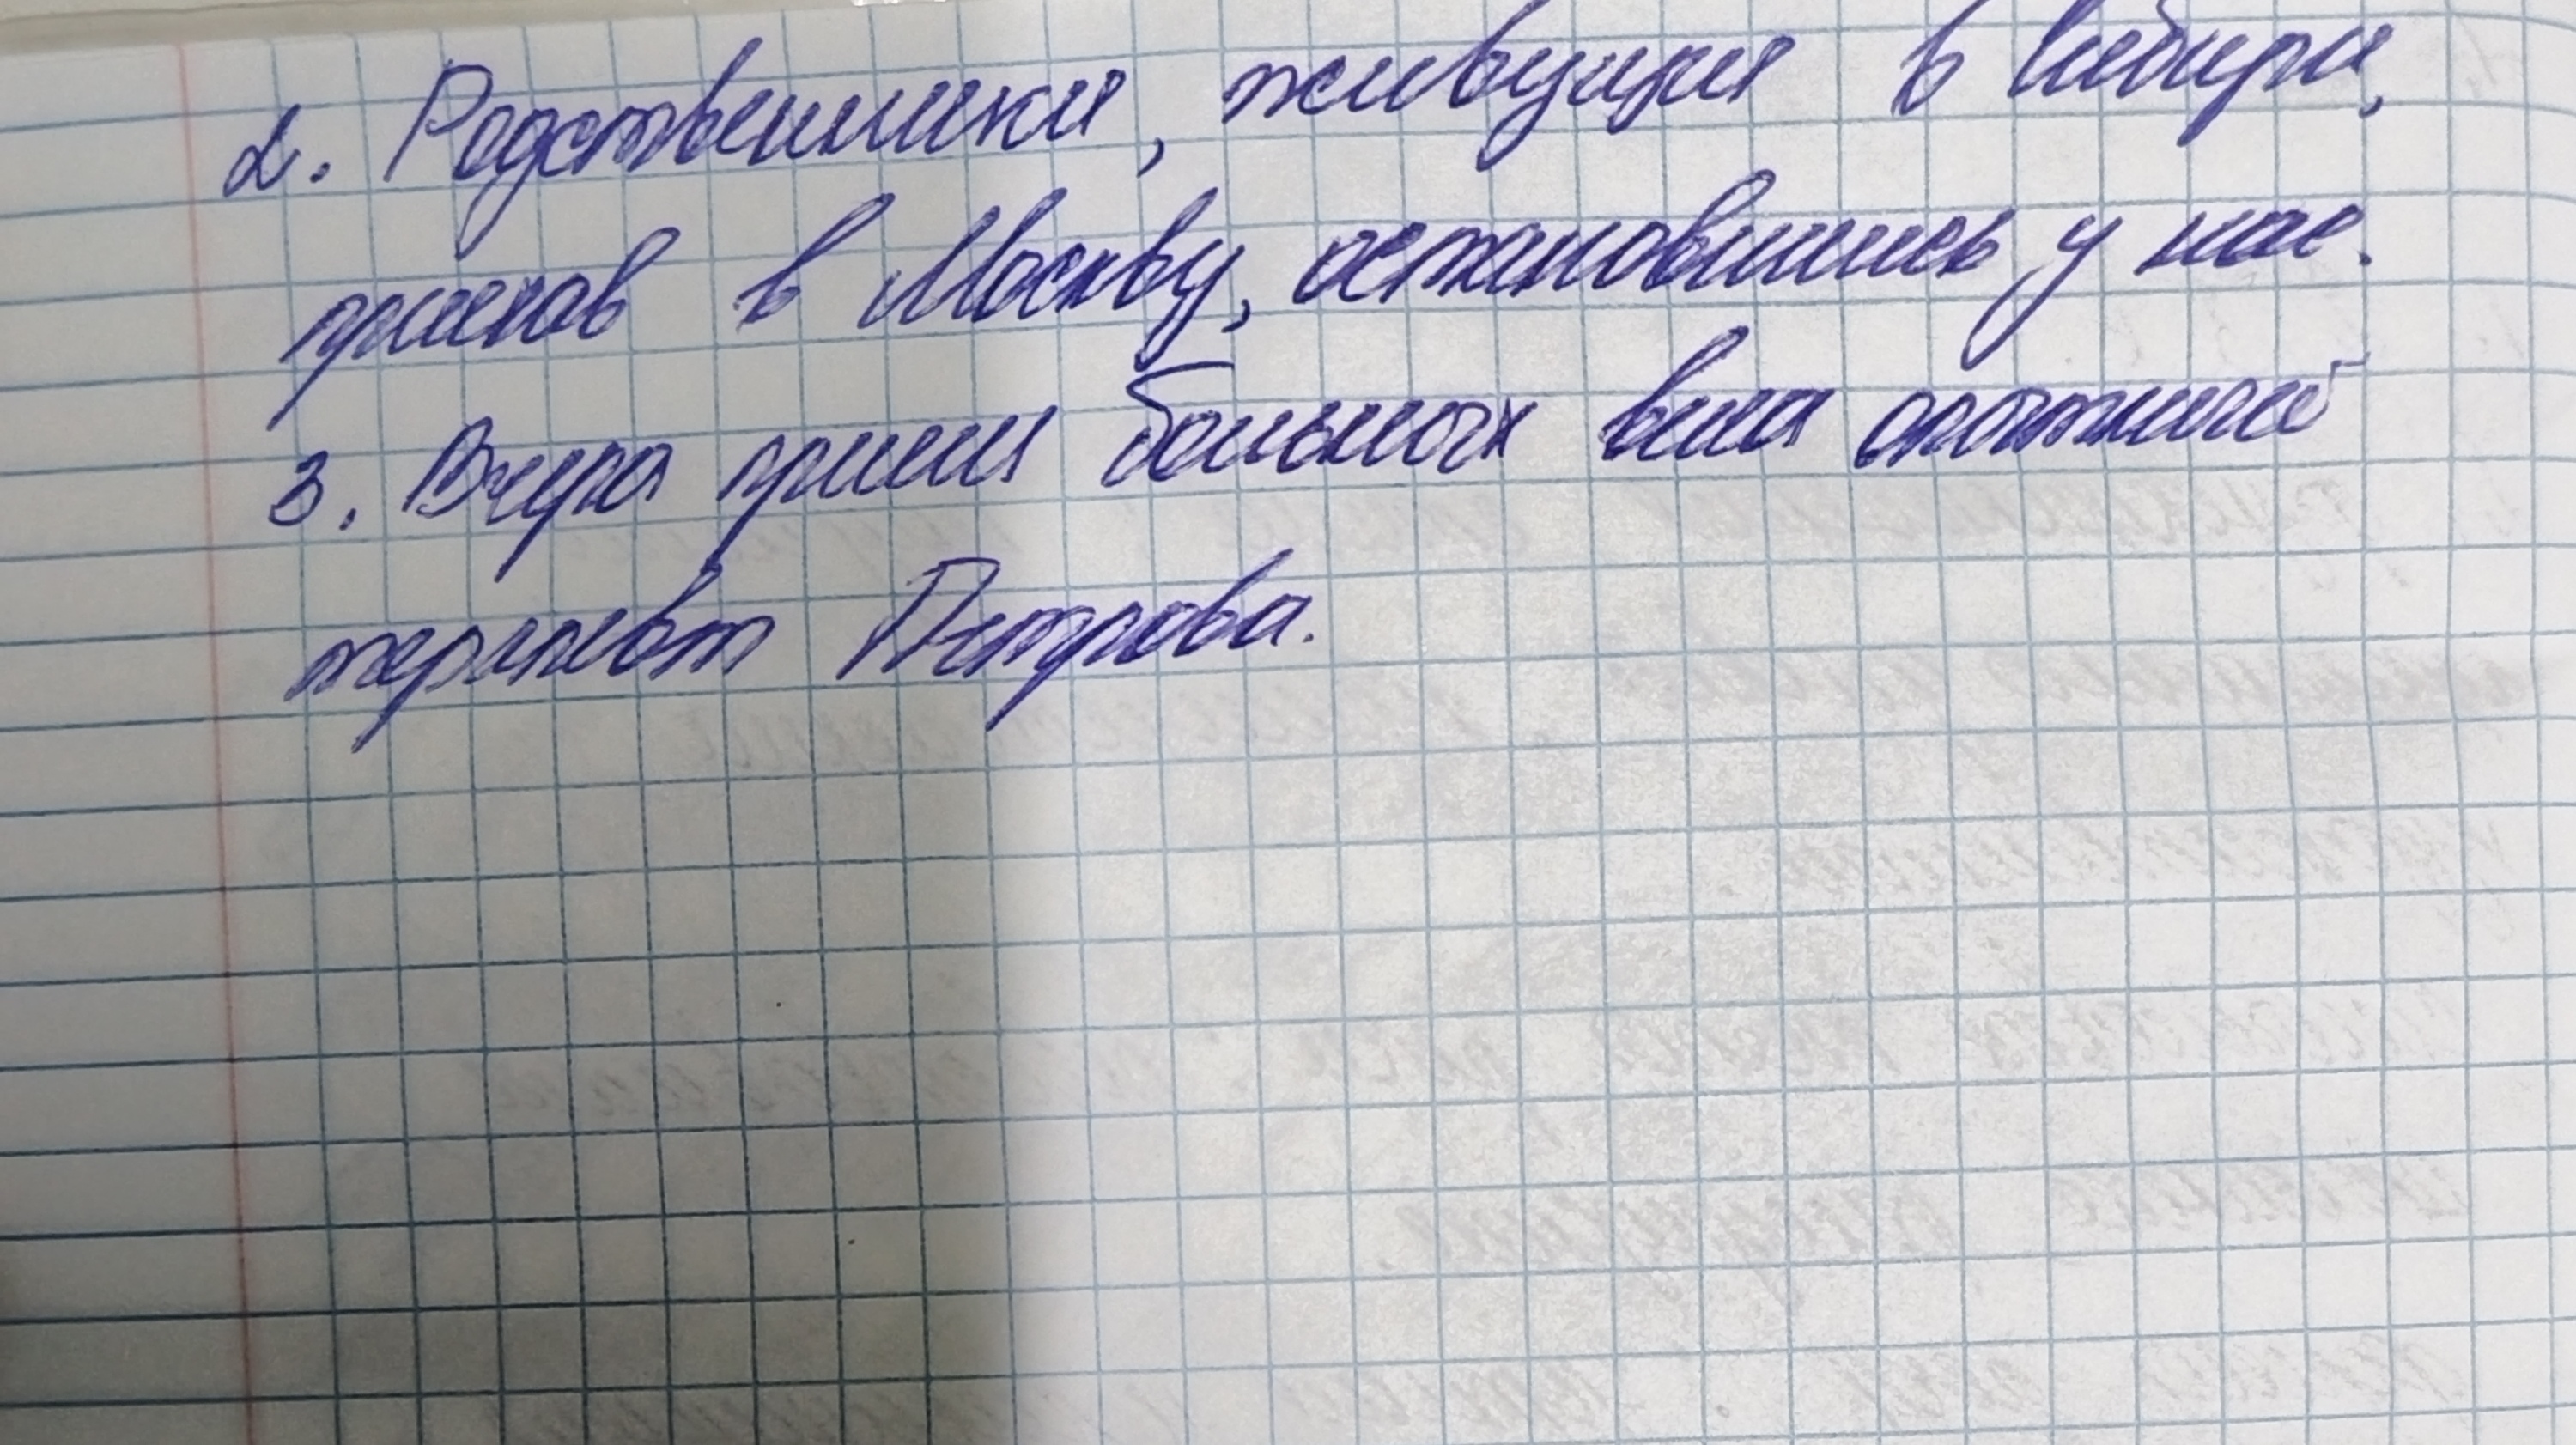 2. Родственники, живущие в Сибири,
приехав в Москву, остановились у нас.
3. Вчера прием больных вела опытный
терапевт Петрова.